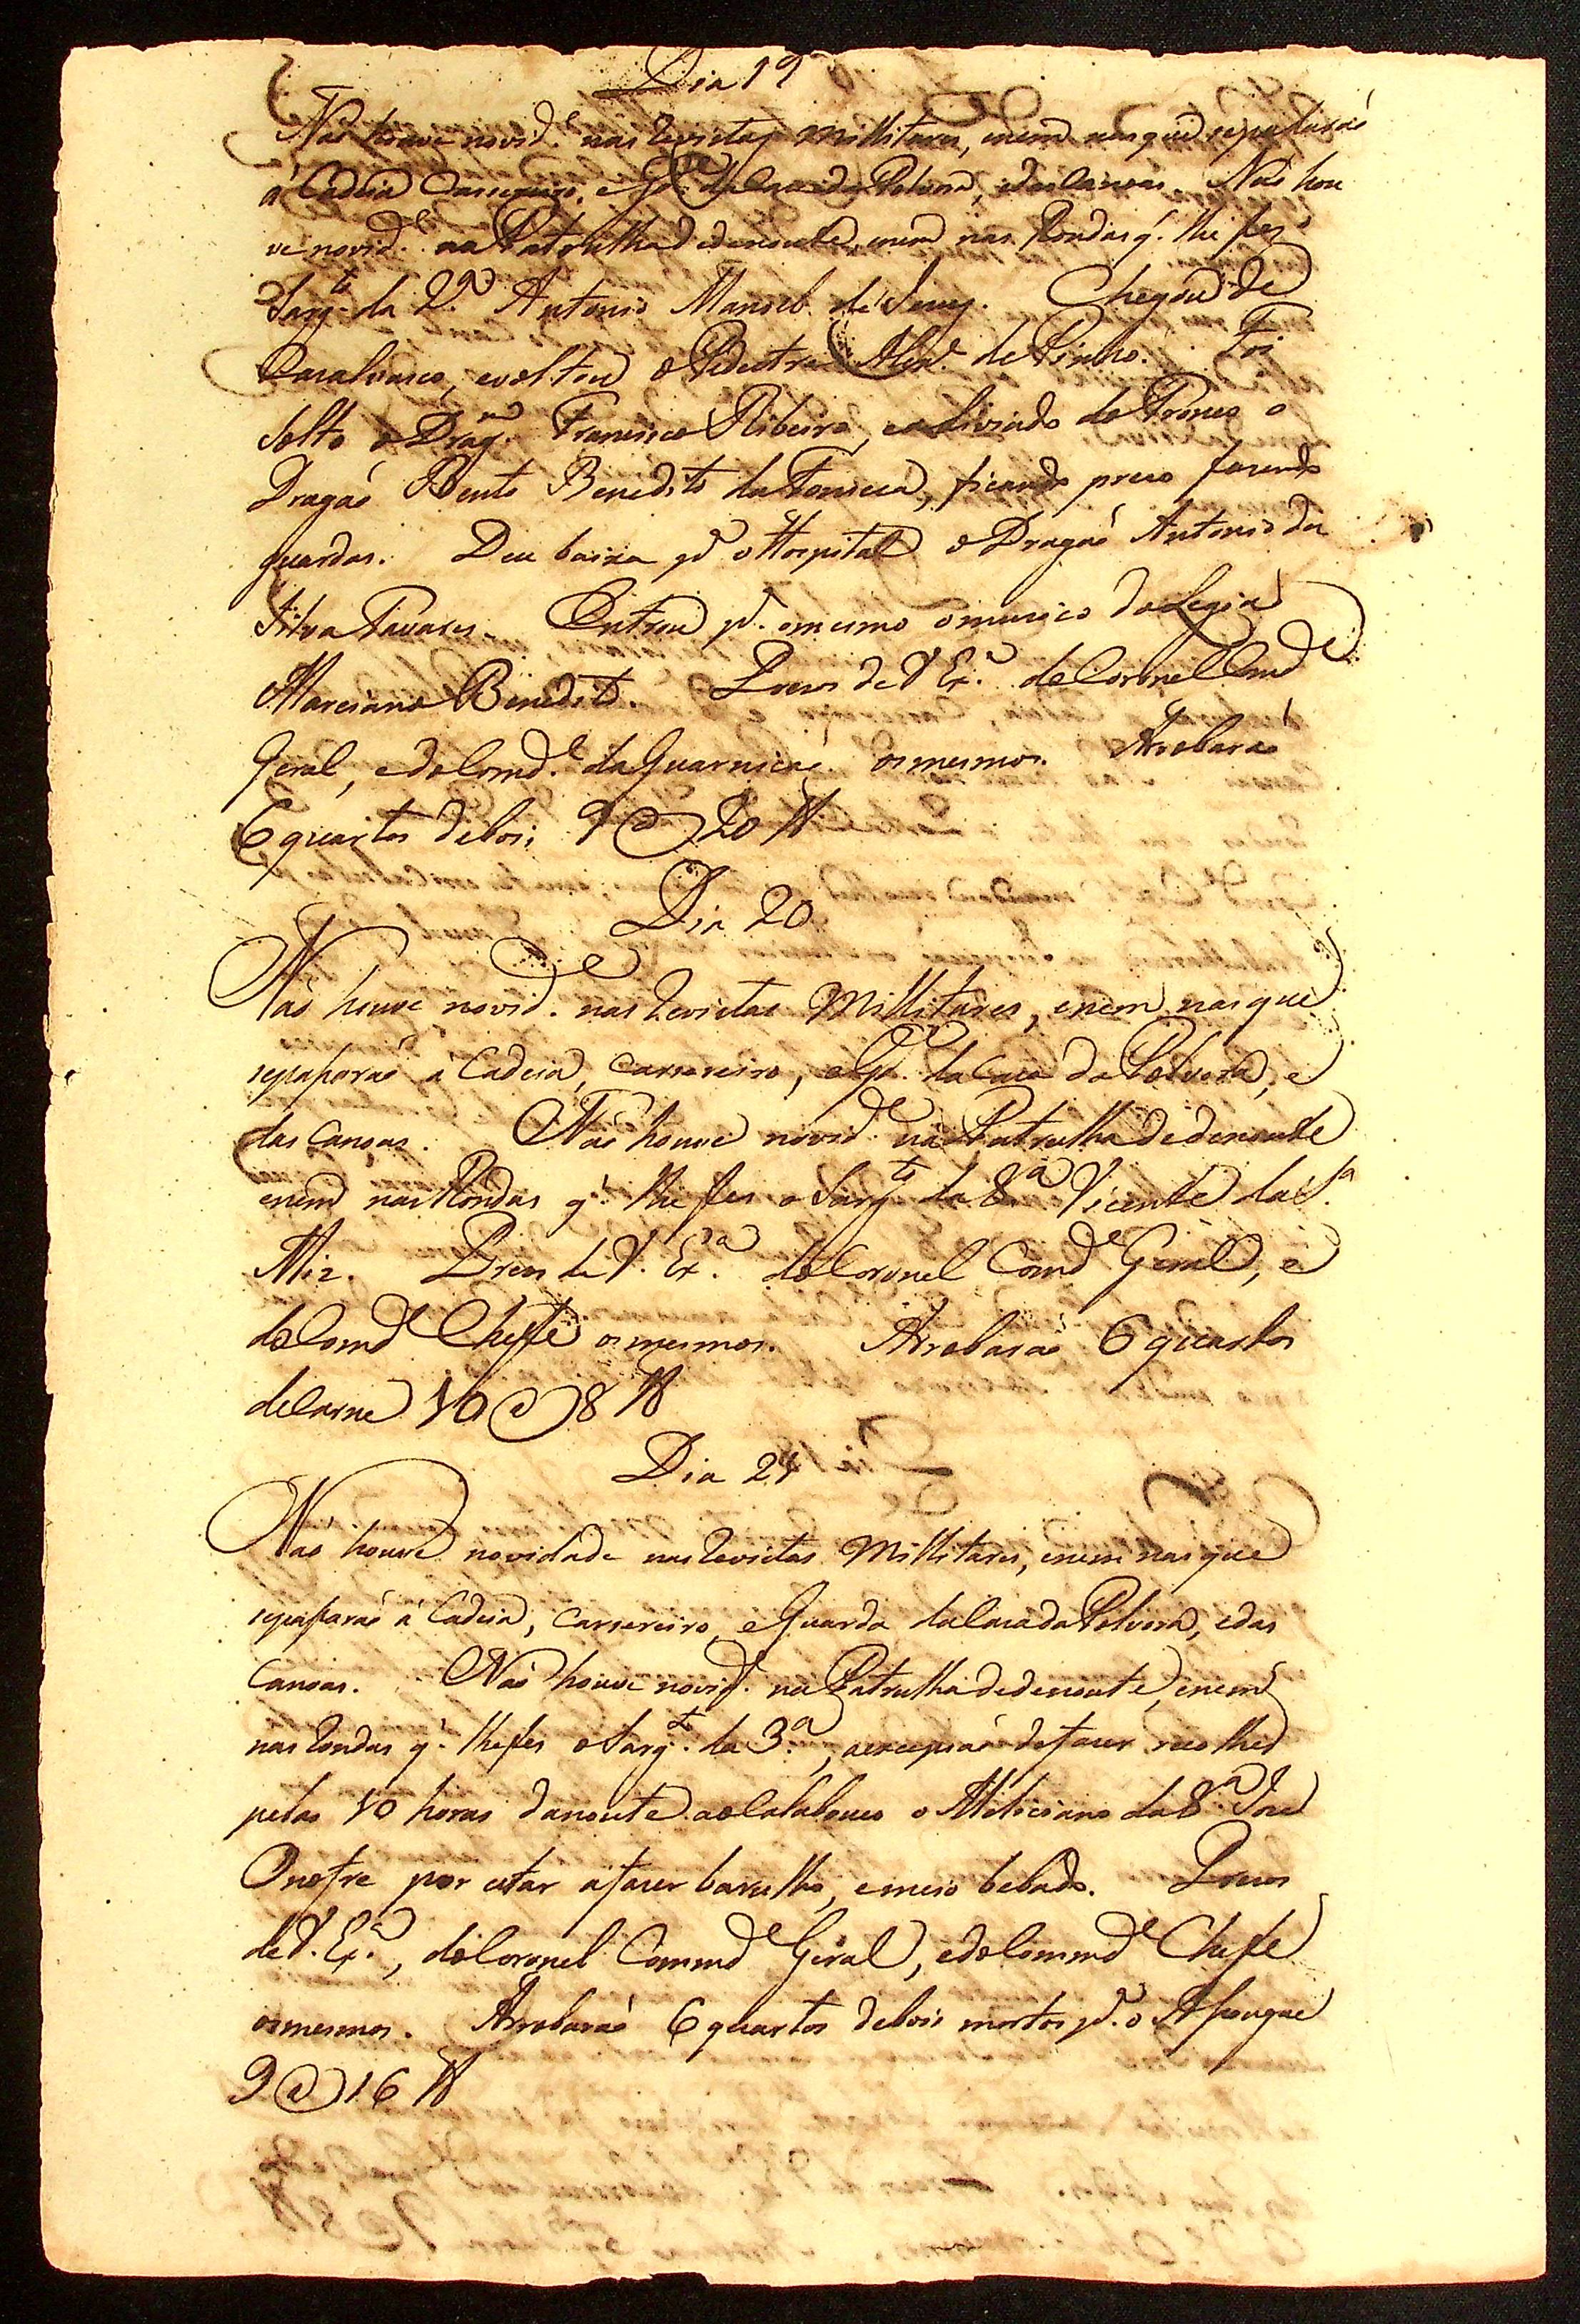 Dia 19
Não houve novid.e nas Revistas Millitares, enem nas que se pasarão
á Cadeia Carsereiro, e G.da da Caza da Polvora, edas Canoas. Não hou
ve novid.e na Patrulha dedenoute, enem nas Rondas q.' lhe fes o
Sarg.to da 2.a Antonio Manoel de Chegou de
Casalvasco, evoltou o Pedestre Alex.e de Pinho. Foi
solto o Drag.m Francisco Ribeiro, e aliviado do Tronco o
Dragaó Bento Benedito da Fonseca, ficando prezo fazendo
guardas. Deu baixa p.a o Hospital o Dragaó Antonio da
Silva Tavares. Entrou p.a omesmo omuzico da Legiaó
Marciano Benedito. Prezos de V Ex.a do Coronel Comd.e
Geral, edo Comd.e da Guarniçaó osmesmos. Arrobaraó
6 quartos de boi; 9 @ 20 ℔
Dia 20
Naó houve novid.e nas Revistas Millitares, enem nas que
sepasaraó á Cadeia, Carsereiro, e G.da da Caza da Polvora, e
das Canoas. Naó houve novid.e na Patrulha dedenoute
enem nas Rondas q.' lhe fes o Sarg.to da 8.a Vicente da S.a
Miz. Prezos de V. Ex.a do Coronel Comd.e Geral, e
do Comd.e Cheffe osmesmos. Arrobaraó 6 quartos
de Carne 10 @ 8 ℔
Dia 21
Naó houve novidade nas Revistas Millitares, enem nas que
sepasaraó á Cadeia, Carsereiro, e Guarda da Caza da Polvora, edas
Canoas. Naó houve novid.e na Patrulha dedenoute, enem
nas Rondas q.' lhe fes o Sarg.to da 3.a, aexcepsaó defazer recolher
pelas 10 horas danoute ao Calabouco o Meliciano da 8.a Joze
Onofre por estar afazer barulho, emeio bebado. Prezos
de V. Ex.a, do Coronel Commd.e Geral, edo Commd.e Cheffe
osmesmos. Arrobaraó 6 quartos de bois mortos p.a o Asougue
9 @ 16 ℔